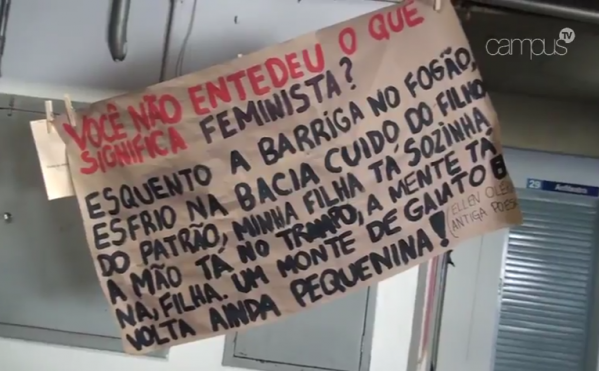 campus TV
VOCÊ NÃO ENTEDEU O QUE
SIGNIFICA FEMINISTA?
ESQUENTO A BARRIGA NO FOGÃO,
ESFRIO NA BACIA CUIDO DO FILHO
DO PATRÃO, MINHA FILHA TÁ SOZINHA
A MÃO TA NO TRAMPO, A MENTE TÁ
NA, FILHA. UM MONTE DE GAIATO E
VOLTA AINDA PEQUENINA!
(ELLEN OLÉRIA
ANTIGA POESIA
25